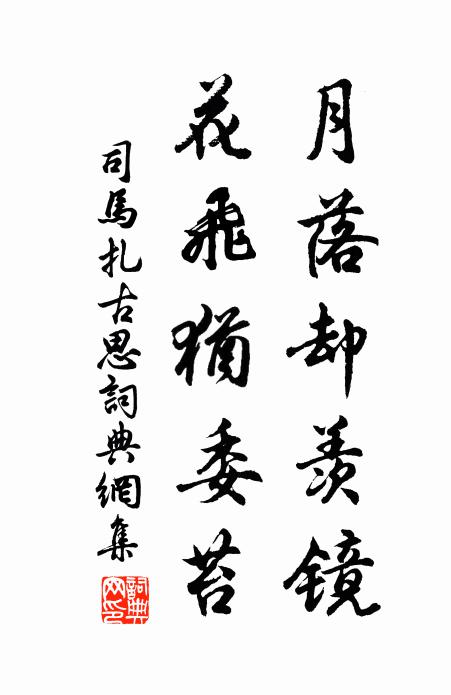 月落却羨镜
花飛猶委苔
司馬扎古思詞典網集
詞典網印